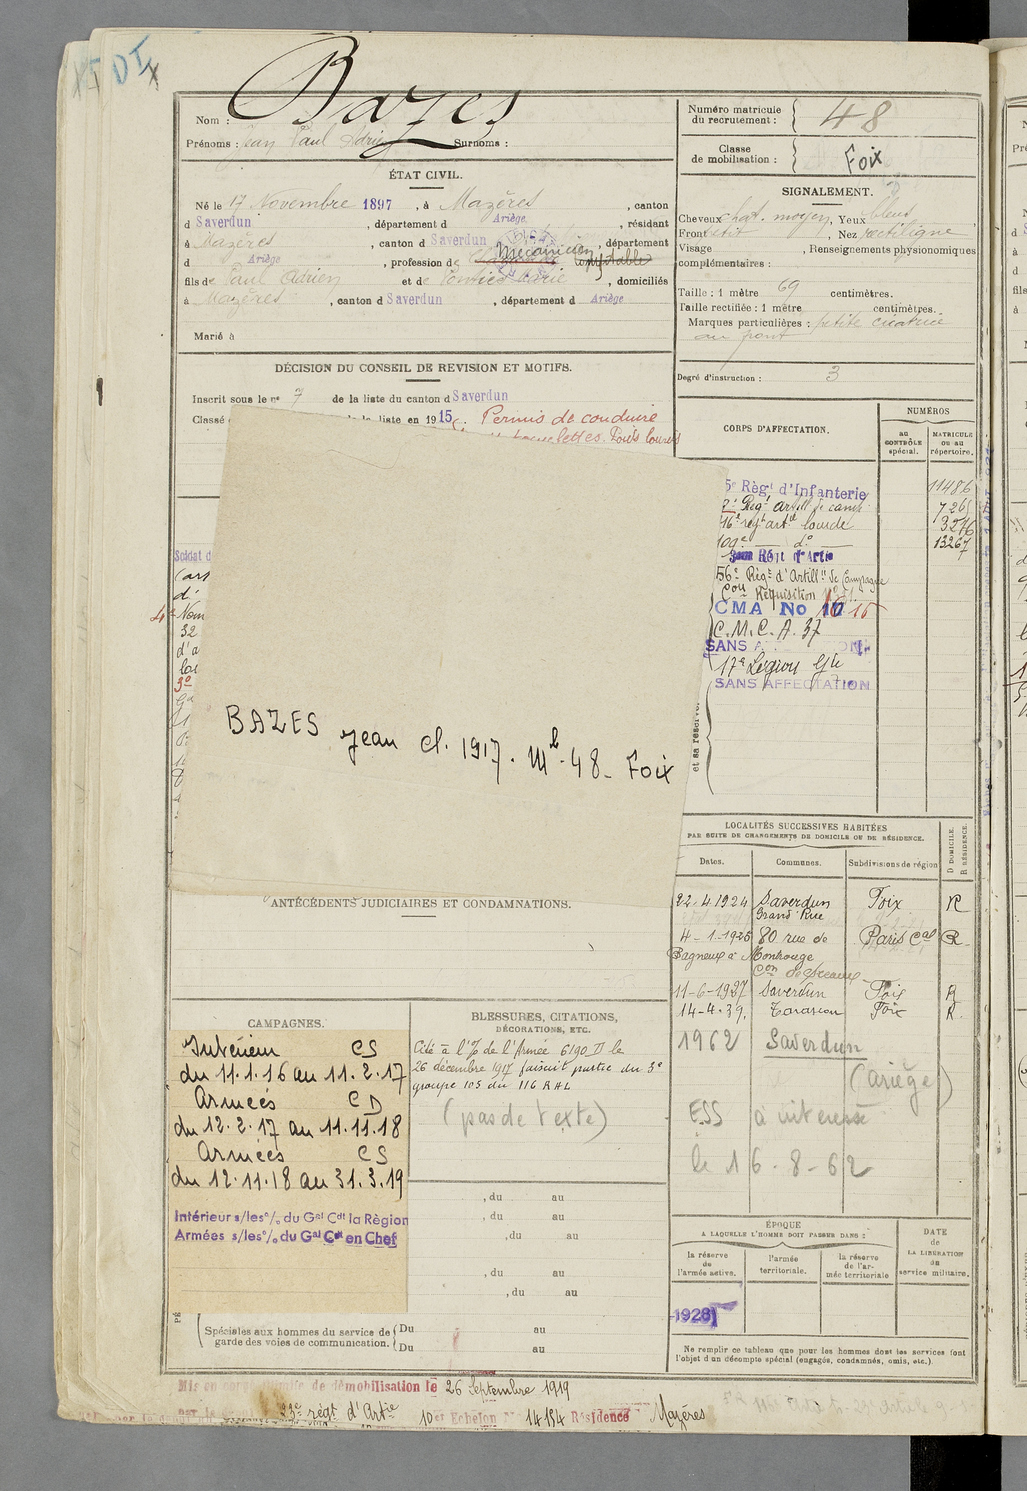 Bazes
Nom :
Prénoms : Jean Paul Adrien Surnoms :
ÉTAT CIVIL.
Né le 17 Novembre 1897, à Mazères, canton
d Saverdun, département d Ariège, résidant
à Mazères, canton d Saverdun, département
d Ariège, profession de Mécanicien comptable
fils de Paul Adrien et de Marie, domiciliés
à Mazères, canton d Saverdun, département d Ariège
Marié à
DÉCISION DU CONSEIL DE REVISION ET MOTIFS.
Inscrit sous le no 7 de la liste du canton d Saverdun
Classé de la liste en 1915. Permis de conduire
Poids lourds
Soldat d
4e Nom
32
d'a
BAZES Jean cl. 1917. Mle. 48 - Foix
ANTÉCÉDENTS JUDICIAIRES ET CONDAMNATIONS.
CAMPAGNES.
Intérieur CS
du 11.1.16 au 11.2.17
Armées CD
du 12.2.17 au 11.11.18
Armées CS
du 12.11.18 au 31.3.19
Intérieur s/les o/o du Gal Cdt la Région
Armées s/les o/o du Gal Cdt en Chef
BLESSURES, CITATIONS,
DÉCORATIONS, ETC.
Cité à l'O/ de l'Armée 6190 D le
26 décembre 1917 faisait partie du 3e
groupe 105 du 116 RAL
(pas de texte)
, du au
, du au
, du au
, du au
, du au
Spéciales aux hommes du service de
garde des voies de communication.
Du au
Du au
Numéro matricule
du recrutement : 48
Classe
de mobilisation : Foix
SIGNALEMENT.
Cheveux chat. moyen, Yeux bleus
Front petit, Nez rectiligne
Visage, Renseignements physionomiques
complémentaires :
Taille : 1 mètre 69 centimètres.
Taille rectifiée : 1 mètre centimètres.
Marques particulières : petite cicatrice
au front
Degré d'instruction : 3
CORPS D'AFFECTATION.
NUMÉROS
au
CONTRÔLE
spécial.
MATRICULE
OU AU
répertoire.
5e Règt d'Infanterie 11486
2e Regt artill de camp 7265
116e régt artie lourde 3276
109e do 13267
Régt d'Artie
56e Régt d'Artillie de Campagne
Con Réquisition
CMA No 17 15
C.M.C.A. 37
SANS
17e Légion Gie
SANS AFFECTATION
et sa réserve.
LOCALITÉS SUCCESSIVES HABITÉES
PAR SUITE DE CHANGEMENTS DE DOMICILE OU DE RÉSIDENCE.
Dates. Communes. Subdivisions de région D DOMICILE. R RÉSIDENCE.
22.4.1924 Saverdun Foix R
Grand Rue
4-1-1926 80 rue de Paris Cal R
Bagneux à Montrouge
Con de Sceaux
11-6-1927 Saverdun Foix R
14-4-39. Tarascon Foix R.
1962 Saverdun
(Ariège)
ESS a intéressé
le 16-8-62
ÉPOQUE
A LAQUELLE L'HOMME DOIT PASSER DANS :
la réserve
de
l'armée active.
l'armée
territoriale.
la réserve
de l'ar-
mée territoriale
DATE
de
LA LIBÉRATION
du
service militaire.
1928
Ne remplir ce tableau que pour les hommes dont les services font
l'objet d'un décompte spécial (engagés, condamnés, omis, etc.).
Mis en congé illimité de démobilisation le 26 Septembre 1919
régt d'Artie 10e Echelon No 14184 Résidence Mazères